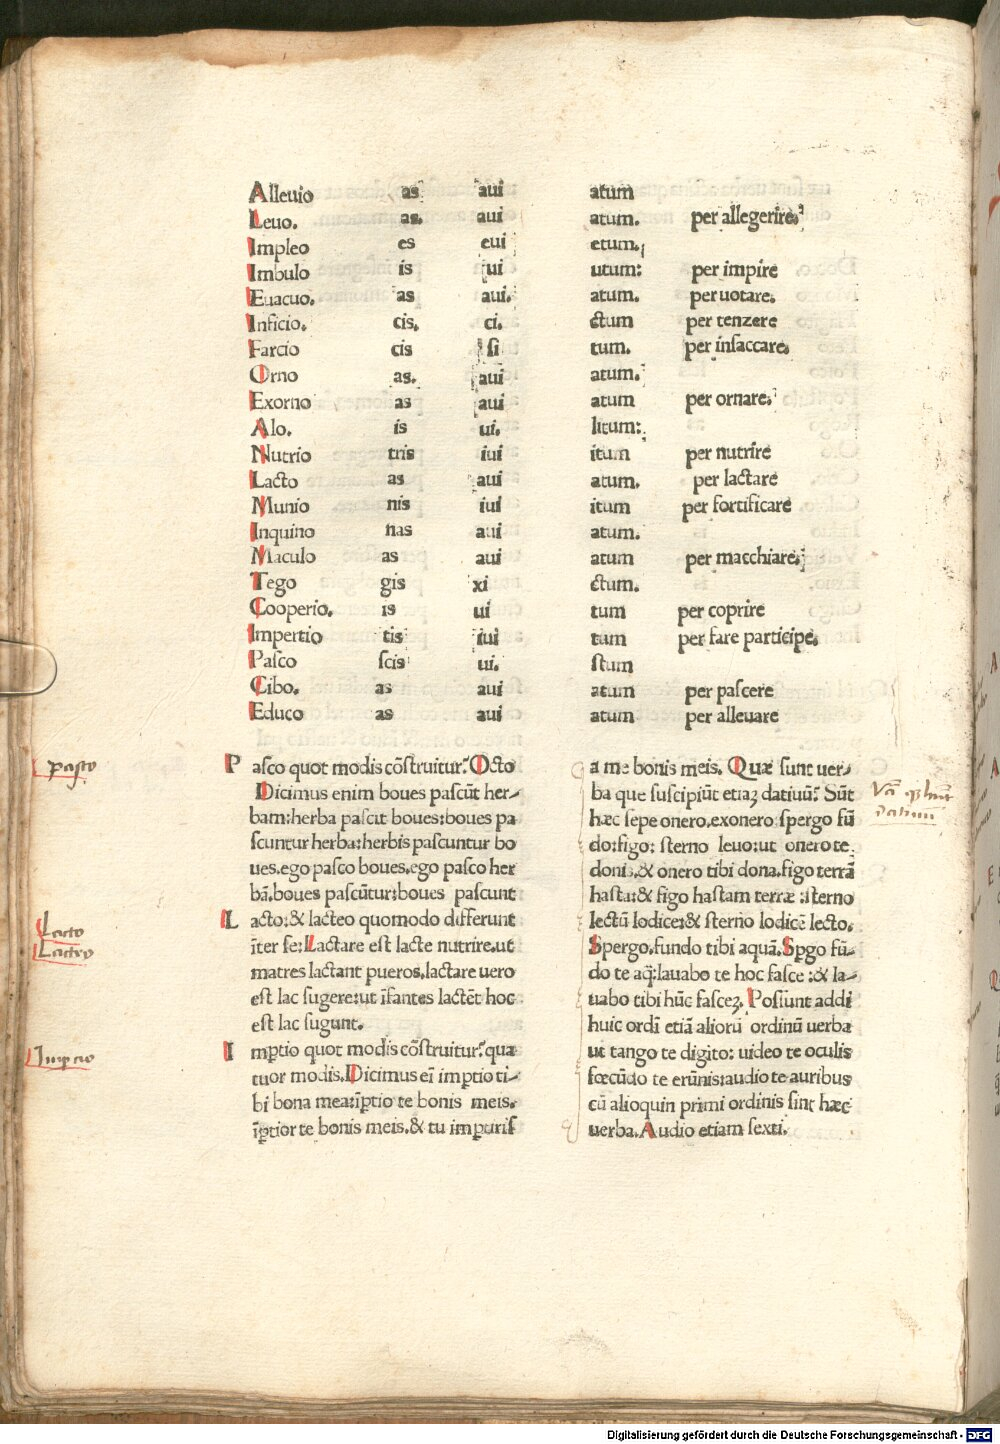 Alleuio as aui atum
Leuo. as. aui atum. per allegerire.
Impleo es eui etum.
Imbulo is ui utum: per impire
Euacuo. as aui. atum. per uotare.
Inficio. cis. ci. ctum per tenzere
Farcio cis si tum. per insaccare.
Orno as. aui atum.
Exorno as aui atum per ornare.
Alo. is ui. litum:
Nutrio tris iui itum per nutrire
Lacto as aui atum. per lactare
Munio nis iui itum per fortificare
Inquino nas aui atum.
Maculo as aui atum per macchiare.
Tego gis xi ctum.
Cooperio. is ui tum per coprire
Impertio tis iui tum per fare participe.
Pasco scis ui. stum
Cibo. as aui atum per pascere
Educo as aui atum per alleuare
pasco
Pasco quot modis cōstruitur? Octo
Dicimus enim boues pascūt her-
bam:herba pascit boues:boues pa
scuntur herba:herbis pascuntur bo
ues.ego pasco boues.ego pasco her
bā.boues pascūtur:boues pascunt
Lacto
Lacto:& lacteo quomodo differunt
Lacteo
īter se:Lactare est lacte nutrire.ut
matres lactant pueros.lactare uero
est lac sugere:ut īfantes lactēt hoc
est lac sugunt.
Imptio
Imptio quot modis cōstruitur? qua
tuor modis.Dicimus eī imptio ti-
bi bona mea:īptio te bonis meis.
īptior te bonis meis.& tu impturis
a me bonis meis. Quæ sunt uer-
ba que suscipiūt etiaȝ datiuū? Sūt
hæc sepe onero.exonero spergo fū
do:figo: sterno leuo:ut onero te
donis.& onero tibi dona.figo terrā
hasta:& figo hastam terræ :sterno
lectū lodice:& sterno lodicē lecto.
Spergo.fundo tibi aquā.Spgo fū-
do te aq̄:lauabo te hoc fasce :& la-
uabo tibi hūc fasceȝ. Possunt addi
huic ordī etiā aliorū ordinū uerba
ut tango te digito: uideo te oculis
fœcūdo te erūnis:audio te auribus
cū alioquin primi ordinis sint hæc
uerba.Audio etiam sexti.
Digitalisierung gefördert durch die Deutsche Forschungsgemeinschaft - DFG